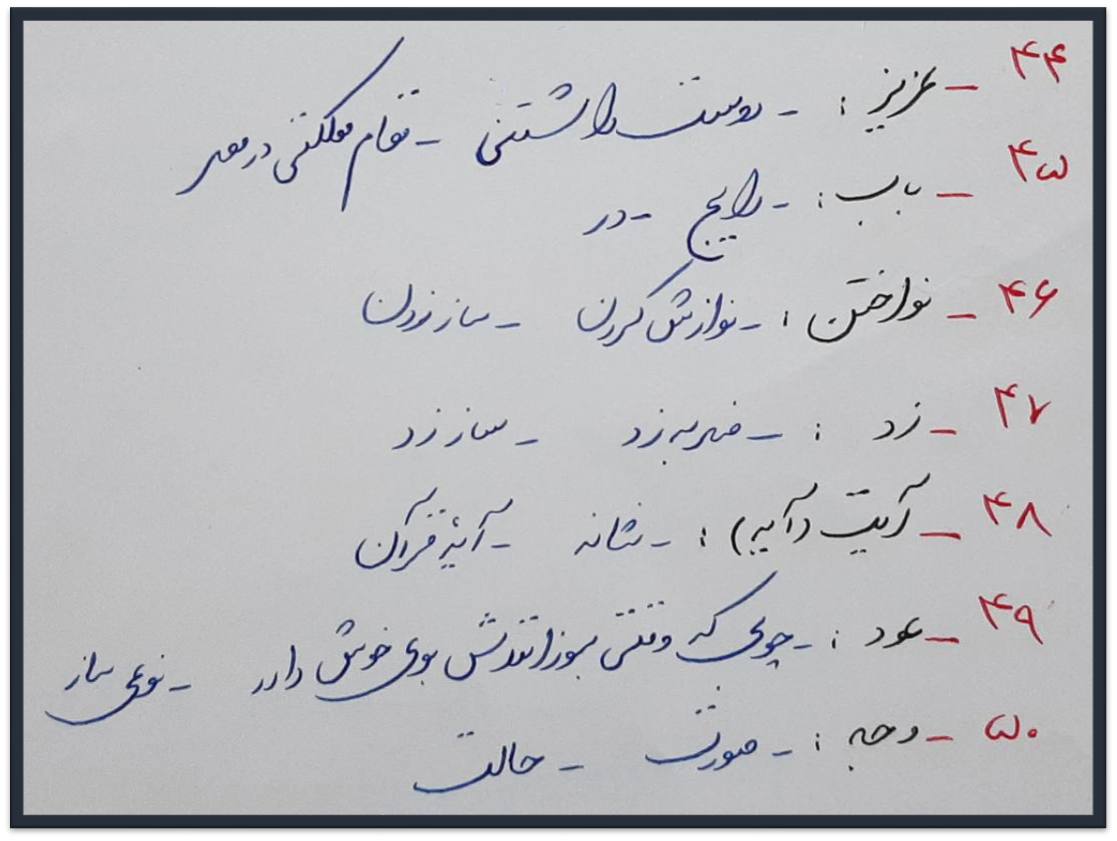 ۴۴ - عزیز : - دوست داشتنی - مقام مملکتی در مصر
۴۵ - باب : - رایج - در
۴۶ - نواختن : - نوازش کردن - ساز زدن
۴۷ - زد : - ضربه زد - ساز زد
۴۸ - آیت (آیه) : - نشانه - آیۀ قرآن
۴۹ - عود : - چوبی که وقتی بسوزانندش بوی خوش دارد - نوعی ساز
۵۰ - وجه : - صورت - حالت